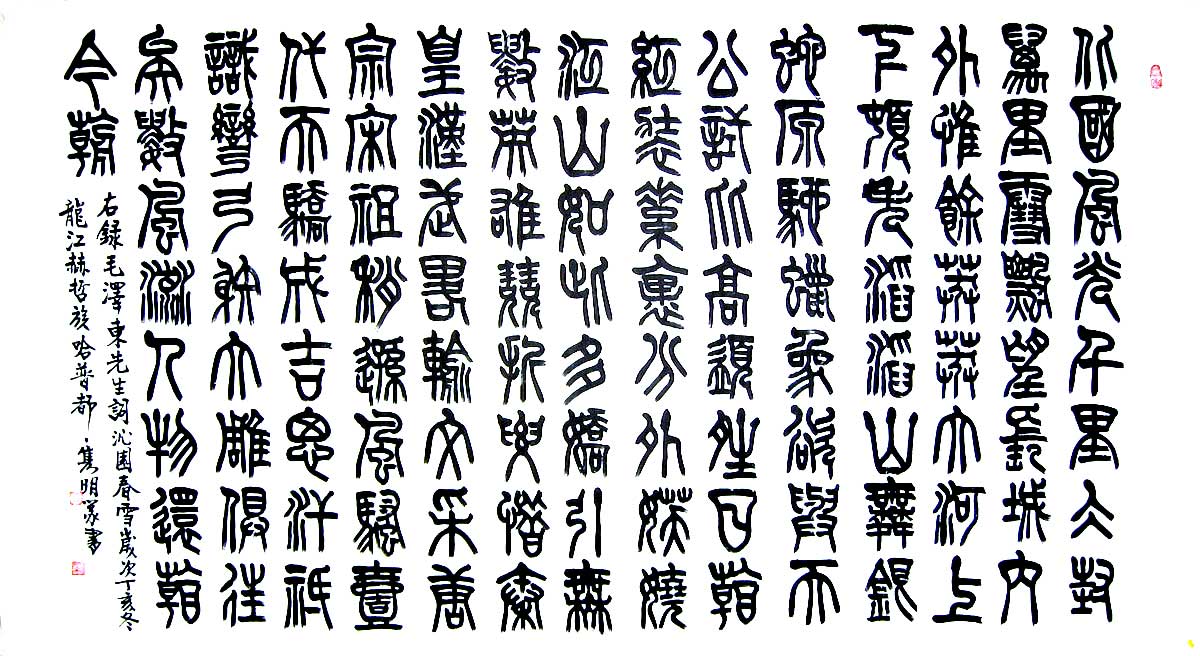 北國風光千里冰封
萬里雪飄望長城內
外惟餘莽莽大河上
下頓失滔滔山舞銀
蛇原馳蠟象欲與天
公試比高須晴日看
紅裝素裹分外妖嬈
江山如此多嬌引無
數英雄競折腰惜秦
皇漢武略輸文采唐
宗宋祖稍遜風騷壹
代天驕成吉思汗祇
識彎弓射大雕俱往
矣數風流人物還看
今朝
右錄毛澤東先生詞沁園春雪歲次丁亥冬
龍江赫哲族哈普都·雋明篆書